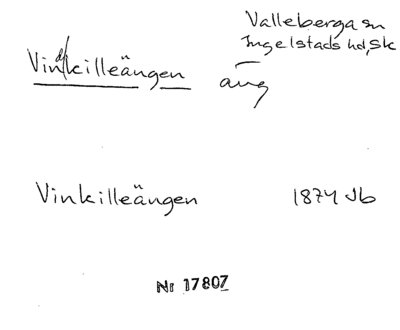 Valleberga sn
Ingelstads hd, Sk
Vindkilleängen äng
Vinkilleängen 1874 Jb
Nr 17807